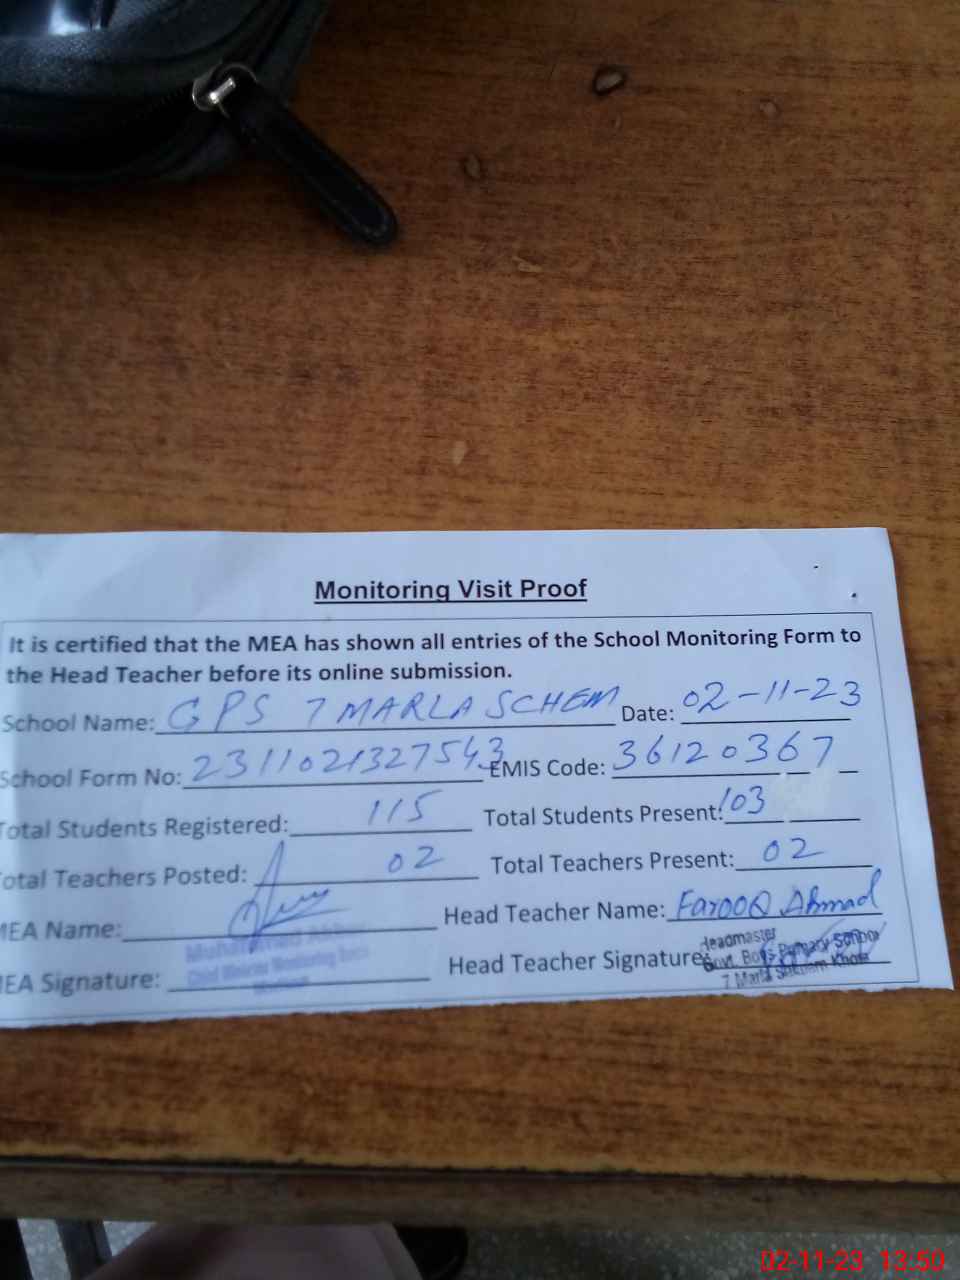 Monitoring Visit Proof
It is certified that the MEA has shown all entries of the School Monitoring Form to
the Head Teacher before its online submission.
School Name: GPS 7 MARLA SCHEM Date: 02-11-23
School Form No: 2311021327543 EMIS Code: 36120367
Total Students Registered: 115 Total Students Present: 103
otal Teachers Posted: 02 Total Teachers Present: 02
MEA Name: Head Teacher Name: Farooq Ahmad
EA Signature: Head Teacher Signature:
Headmaster
Govt. Boys Primary School
7 Marla
02-11-23 13:50